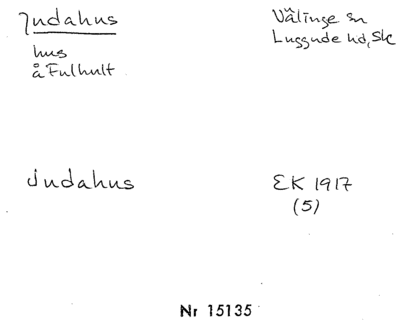 Judahus
Vålinge sn
Luggude hd, Sk
hus
å Fulhult
Judahus
EK 1917
(5)
Nr 15135